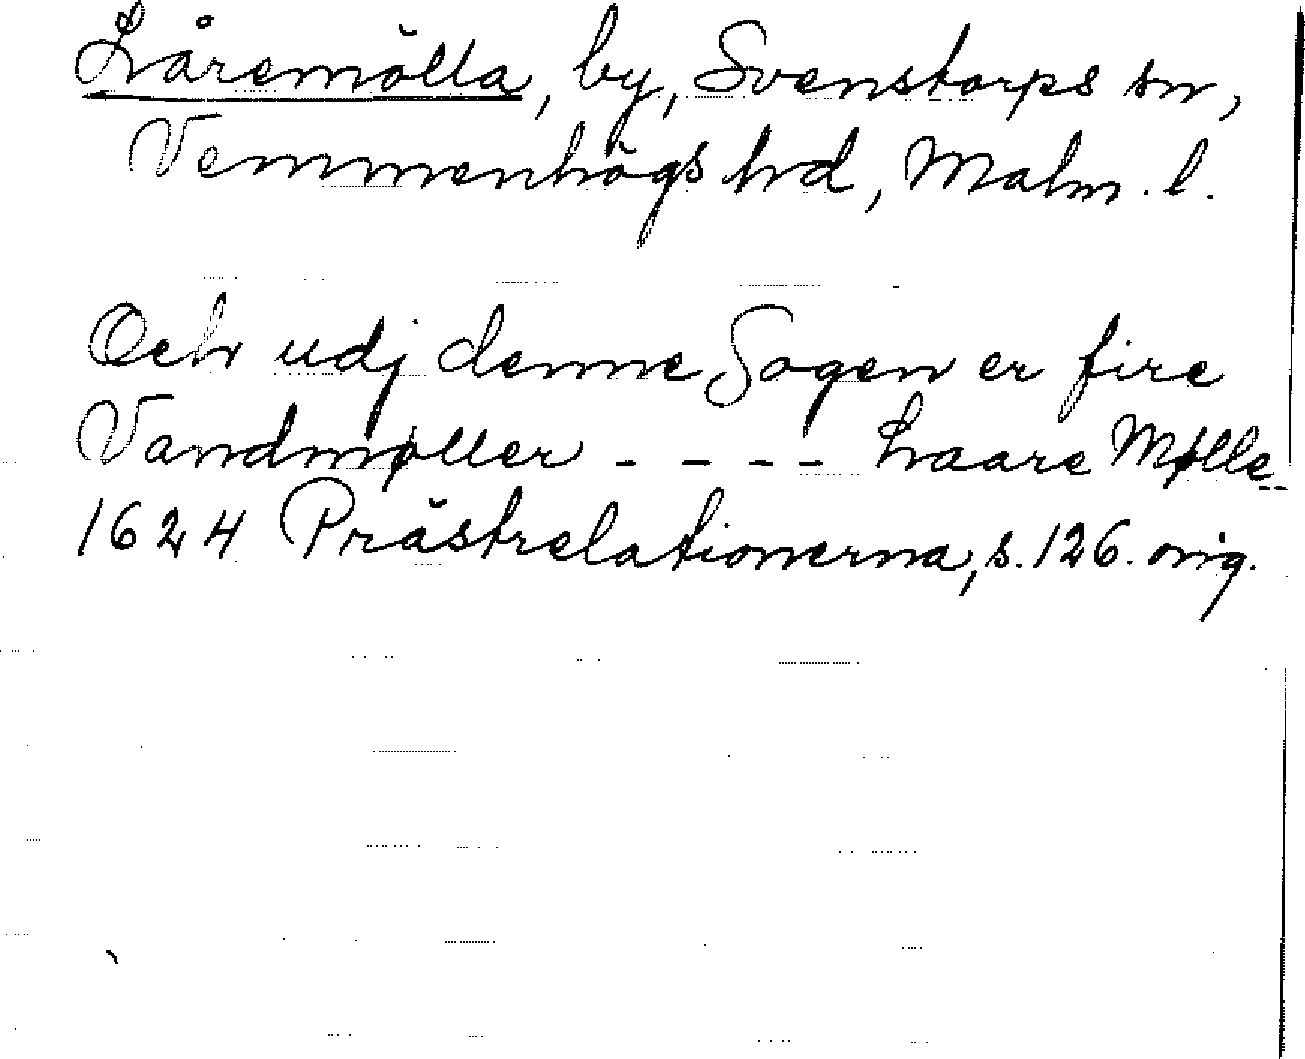 Låremölla, by, Svenstorps sn,
Vemmenhögs hd, Malm. l.
Och udj denne Sogen er fire
Vandmøller - - - - Laare Mølle
1624 Prästrelationerna, s. 126. orig.